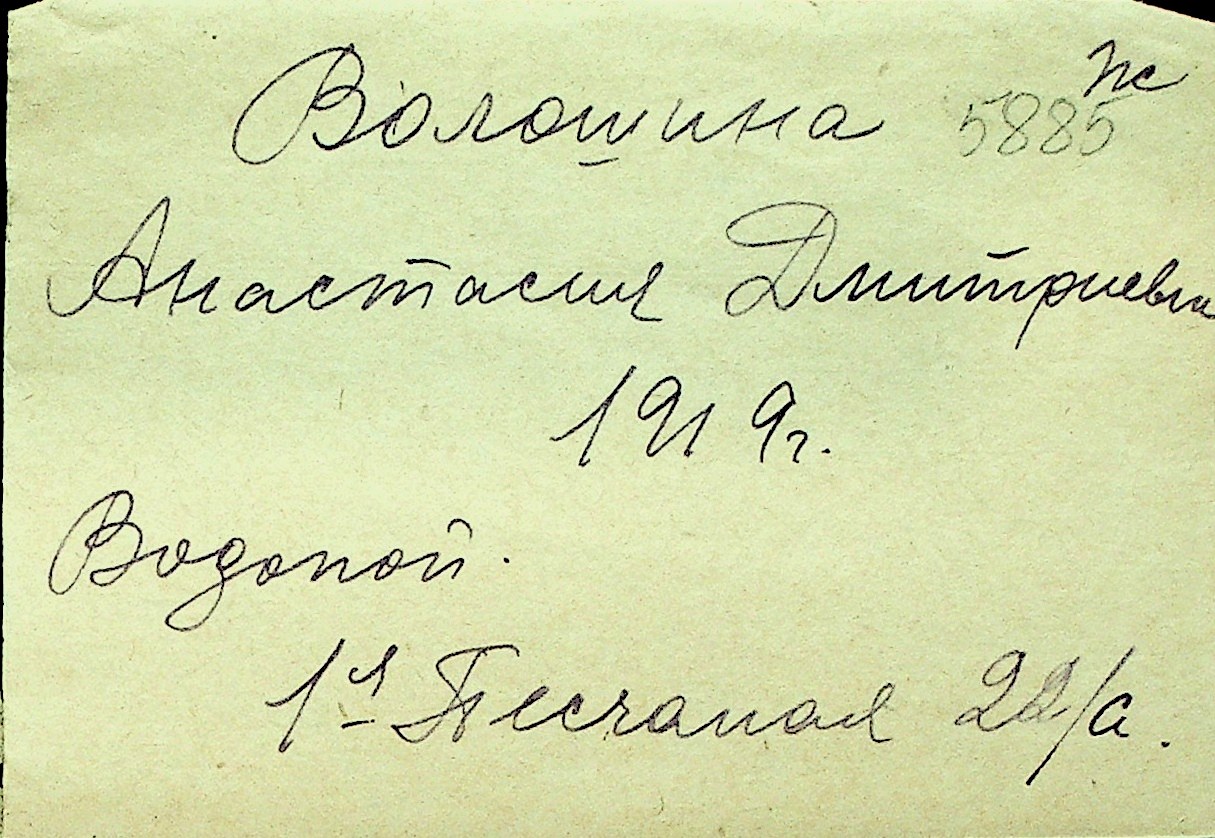 Волошина 5885
Анастасия Дмитриевна
1919г.
Водопой.
1я Песчаная 22/а.